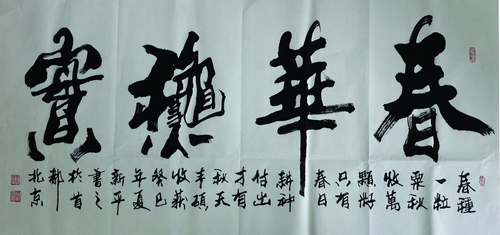 春華穐實
春種
一粒
粟秋
收萬
顆籽
只有
春日
耕种
付出
才有
秋天
丰碩
收获
癸巳
年夏
新平
書之
於首
都
北京